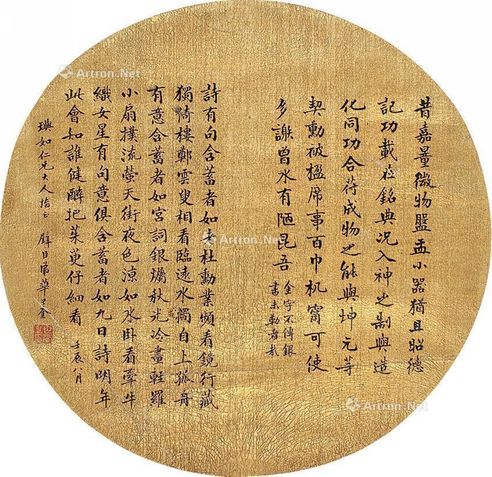 昔嘉量微物盤盂小器猶且昭德
記功載在銘典況入神之制與造
化同功合符成物之能與坤元等
契勳被楹席事百巾机寧可使
多謝曾水有陋昆吾
金字不傳銀
書未勒者哉
詩有句含蓄者如老杜勳業頻看鏡行藏
獨倚樓鄭雲叟相看臨遠水獨自上孤舟
有意含蓄者如宮詞銀燭秋光冷畫輕羅
小扇撲流螢天街夜色涼如水臥看牽牛
織女星有句意俱含蓄者如九日詩明年
此會如誰健醉把茱萸仔細看 壬辰八月
瑛如仁兄大人指正 弟華
Artron.Net
Artron.Net
Artron.Net
Artron.Net